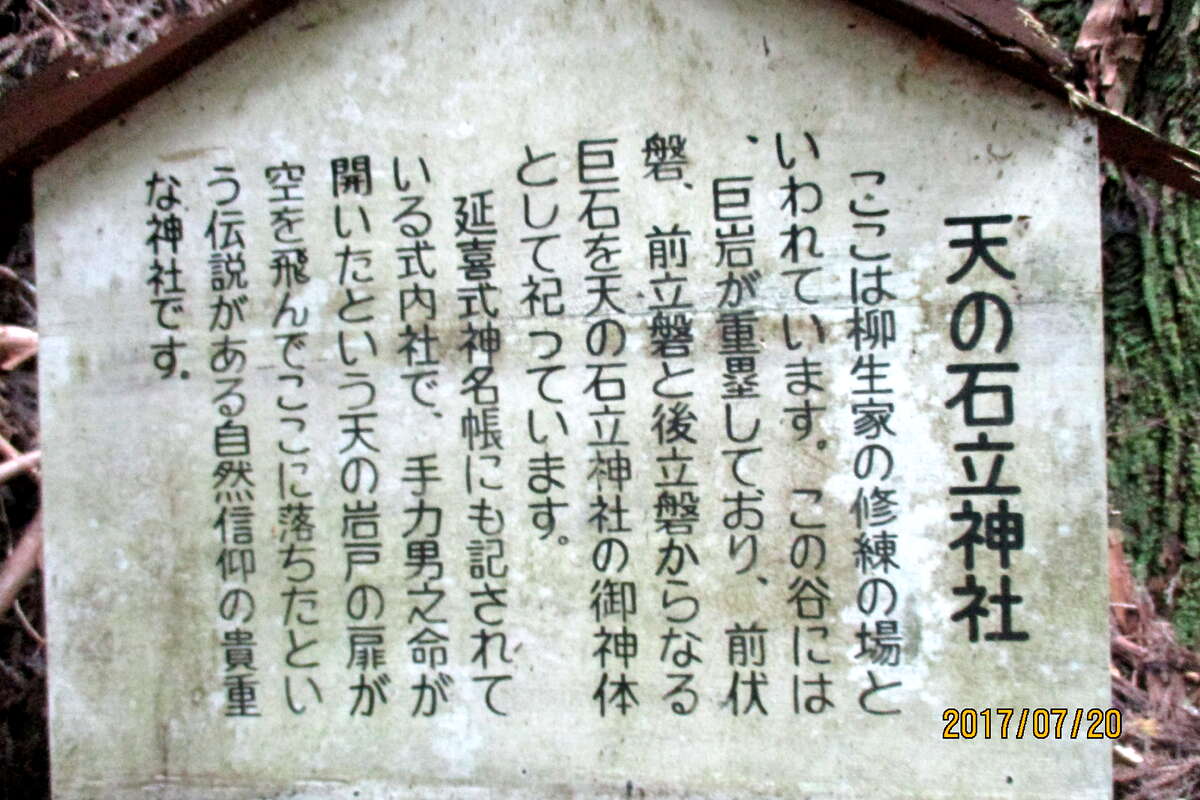 天の石立神社
ここは柳生家の修練の場と
いわれています。この谷には
、巨岩が重塁しており、前伏
磐、前立磐と後立磐からなる
巨石を天の石立神社の御神体
として祀っています。
延喜式神名帳にも記されて
いる式内社で、手力男之命が
開いたという天の岩戸の扉が
空を飛んでここに落ちたとい
う伝説がある自然信仰の貴重
な神社です.
2017/07/20